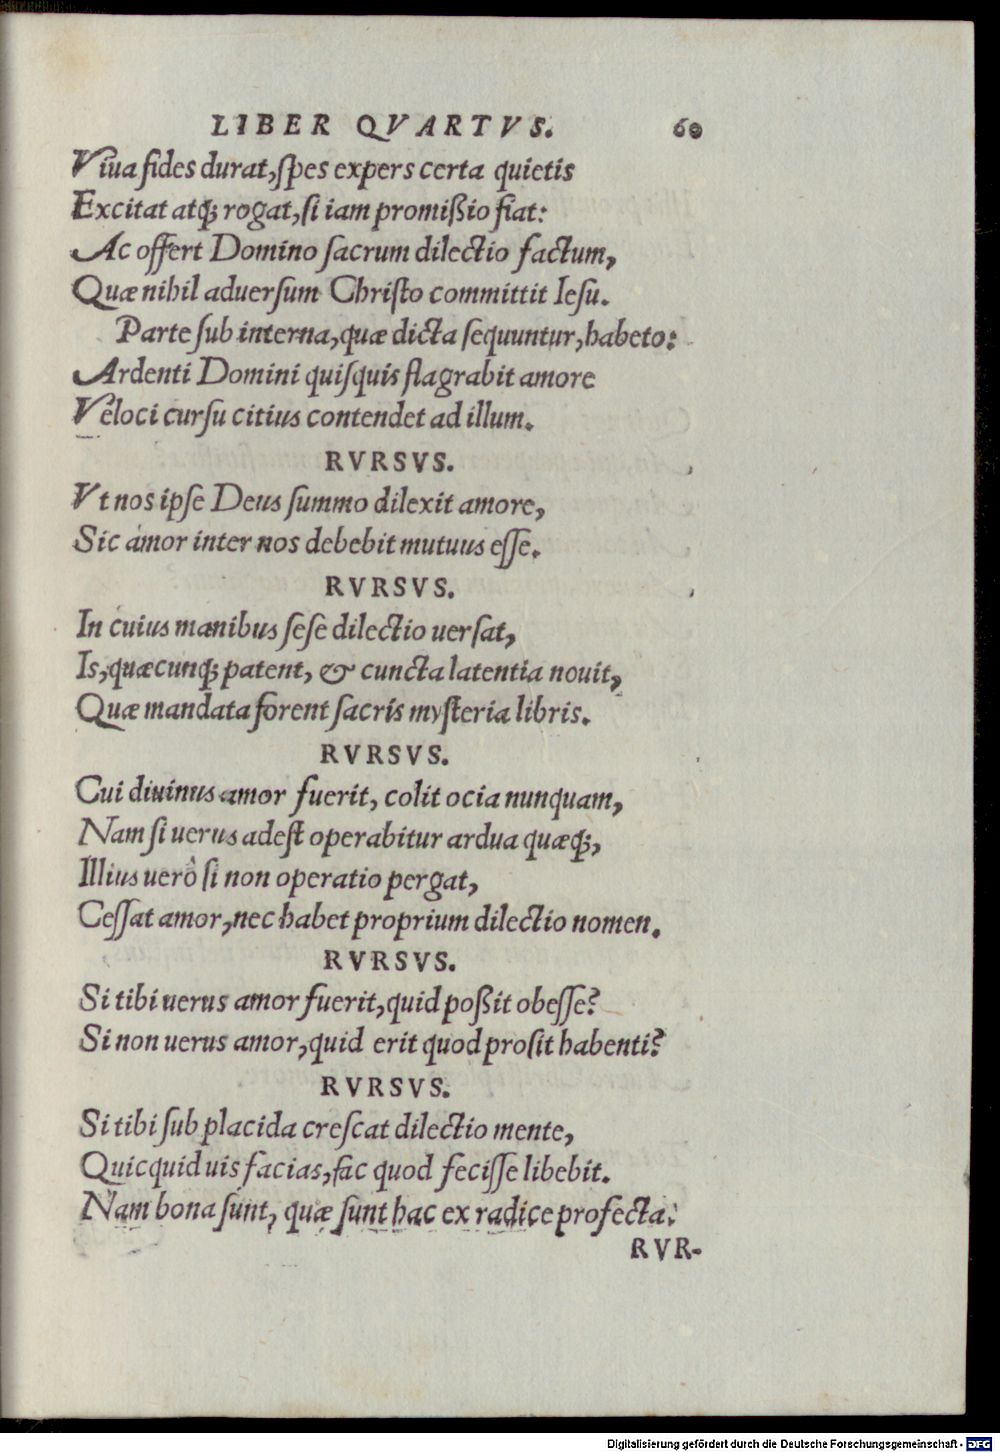 LIBER QVARTVS. 60
Viua fides durat, ſpes expers certa quietis
Excitat atq; rogat, ſi iam promißio fiat:
Ac offert Domino ſacrum dilectio factum,
Quæ nihil aduerſum Chriſto committit Ieſu.
Parte ſub interna, quæ dicta ſequuntur, habeto:
Ardenti Domini quiſquis flagrabit amore
Veloci curſu citius contendet ad illum.
RVRSVS.
Vt nos ipſe Deus ſummo dilexit amore,
Sic amor inter nos debebit mutuus eſſe.
RVRSVS.
In cuius manibus ſeſe dilectio uerſat,
Is, quæcunq; patent, & cuncta latentia nouit,
Quæ mandata forent ſacris myſteria libris.
RVRSVS.
Cui diuinus amor fuerit, colit ocia nunquam,
Nam ſi uerus adeſt operabitur ardua quæq;,
Illius uerò ſi non operatio pergat,
Ceſſat amor, nec habet proprium dilectio nomen.
RVRSVS.
Si tibi uerus amor fuerit, quid poßit obeſſe?
Si non uerus amor, quid erit quod proſit habenti?
RVRSVS.
Si tibi ſub placida creſcat dilectio mente,
Quicquid uis facias, fac quod feciſſe libebit.
Nam bona ſunt, quæ ſunt hac ex radice profecta.
RVR-
Digitalisierung gefördert durch die Deutsche Forschungsgemeinschaft - DFG